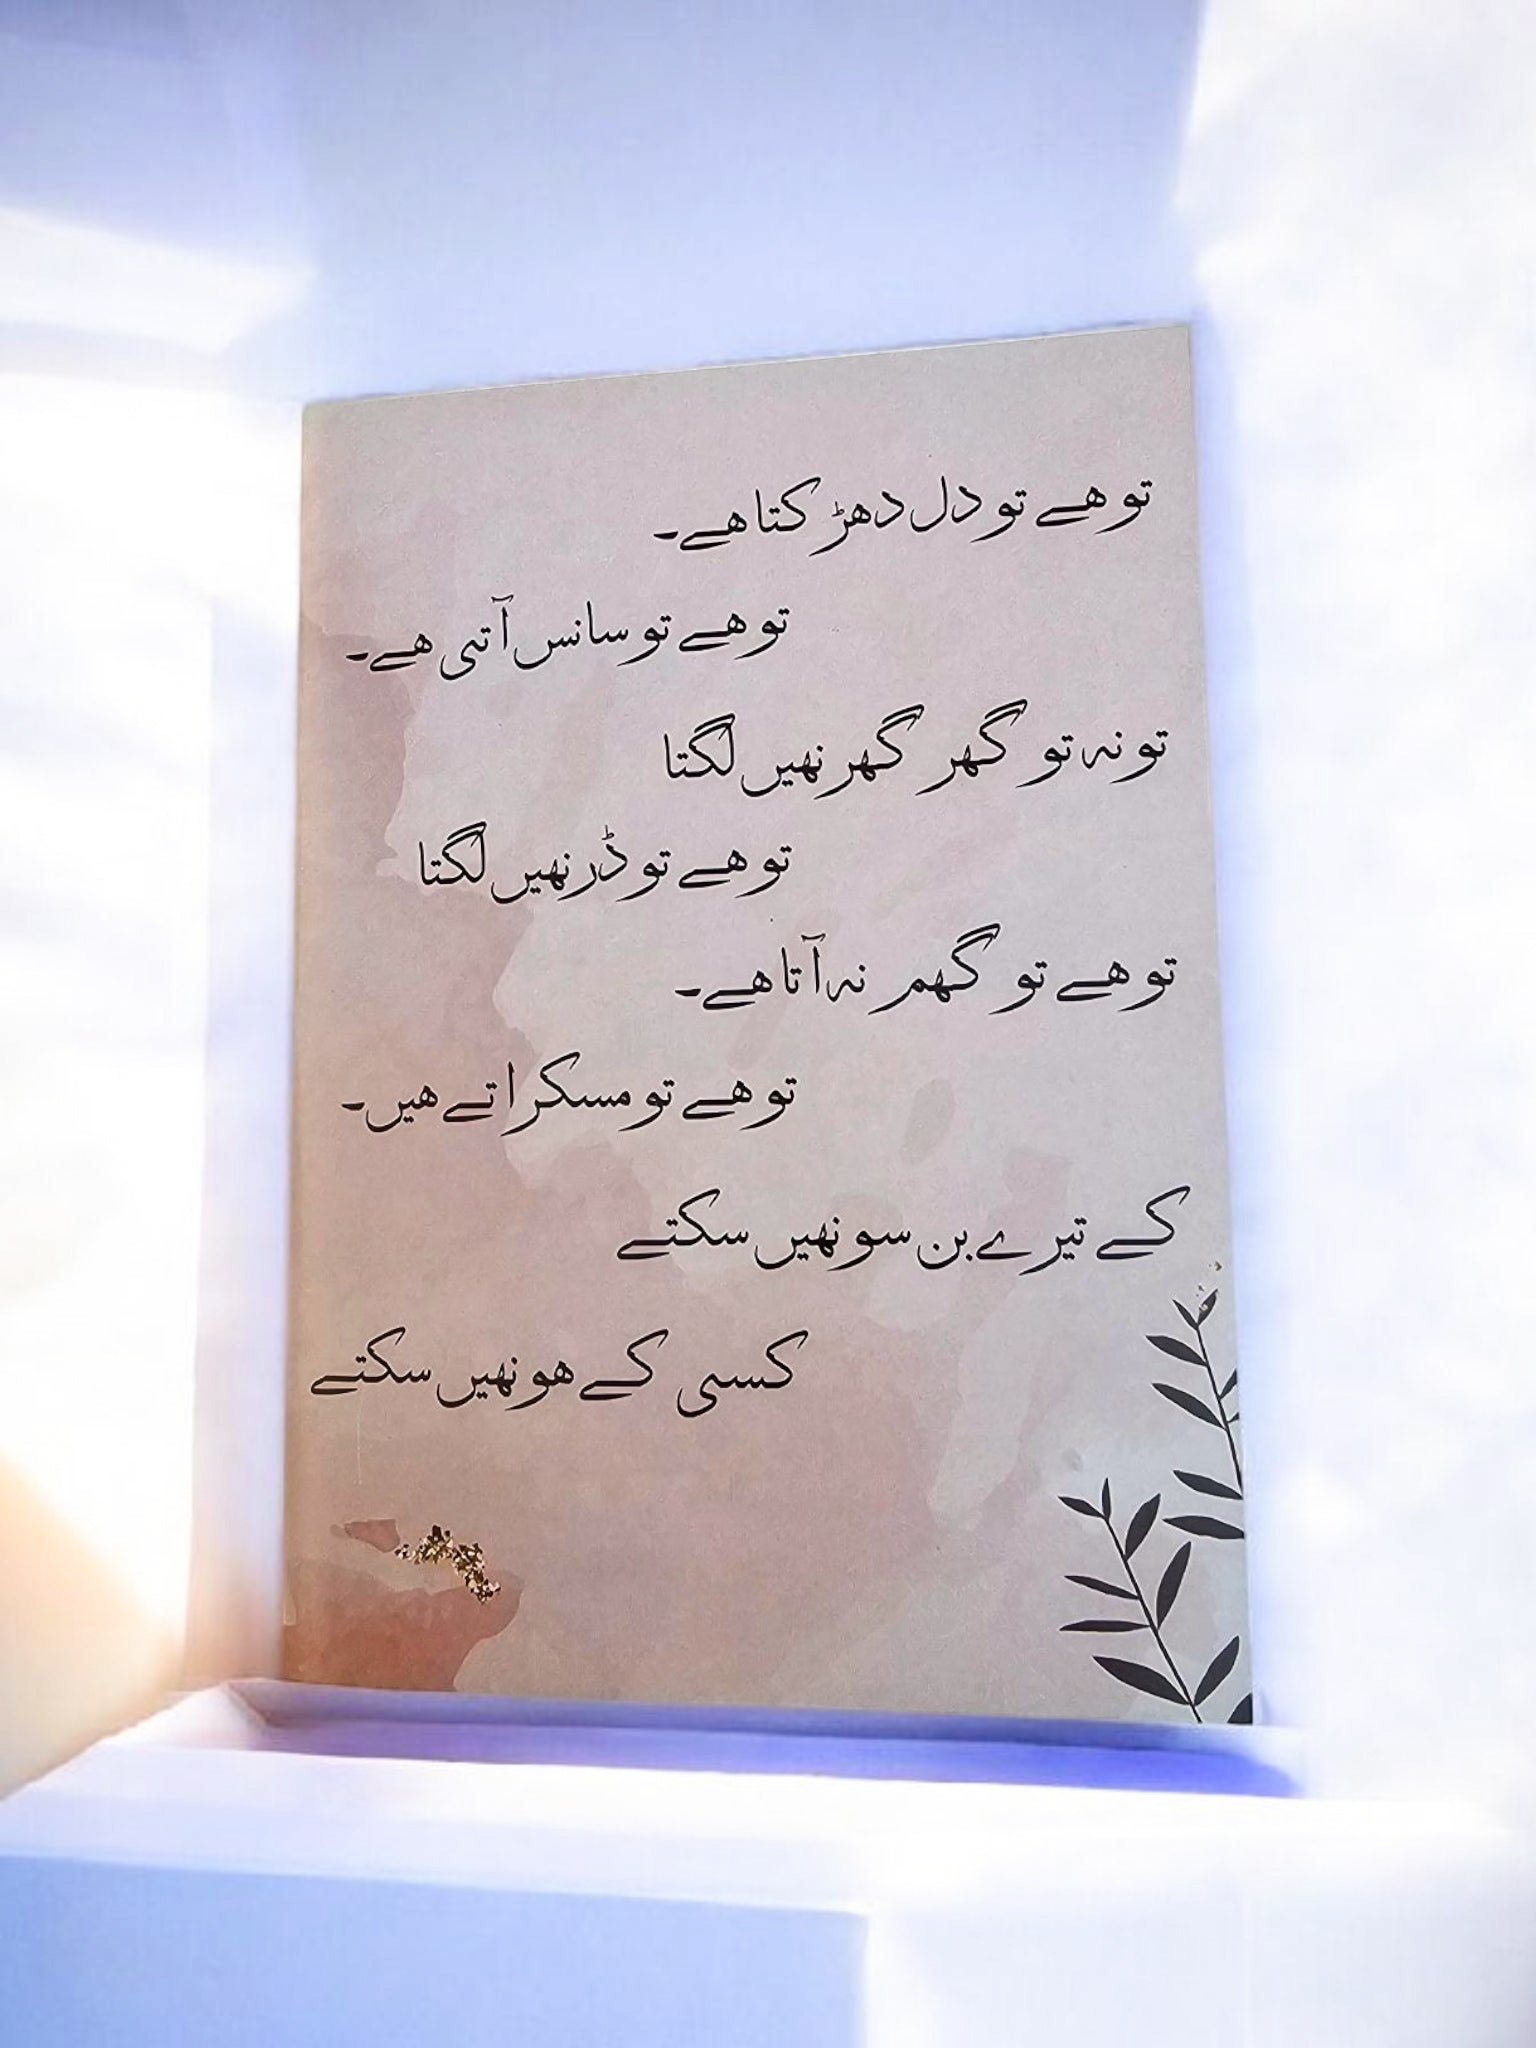 تو ھے تو دل دھڑ کتا ھے۔
تو ھے تو سانس آتی ھے۔
تو نہ تو گھر گھر نھیں لگتا
تو ھے تو ڈر نھیں لگتا
تو ھے تو گھم نہ آتا ھے۔
تو ھے تو مسکر اتے ھیں۔
کے تیرے بن سو نھیں سکتے
کسی کے ھو نھیں سکتے